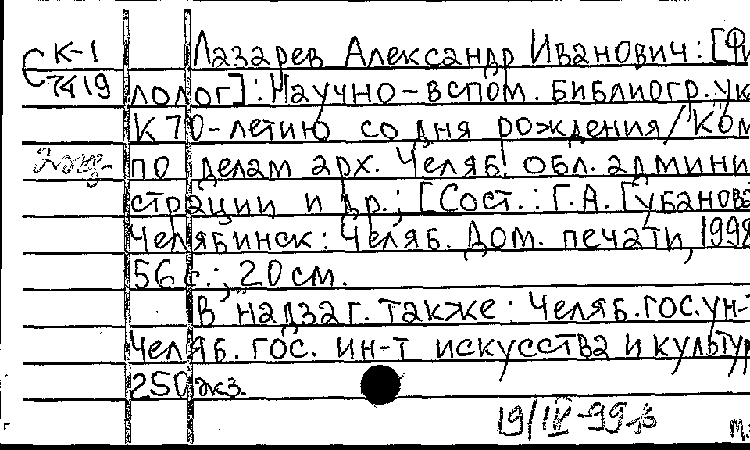 К-1 Лазарев Александр Иванович: [Фи
7419 лолог]: Научно-вспом. библиогр. ук
К 70-летию со дня рождения / Ком
2 экз. по делам арх. Челяб. обл. админи
страции и др.; [Сост.: Г.А. Губанова
Челябинск: Челяб. дом. печати, 1998
56 с.; 20 см.
В надзаг. также: Челяб. гос. ун-
Челяб. гос. ин-т искусства и культур
250 экз.
19/IV-99